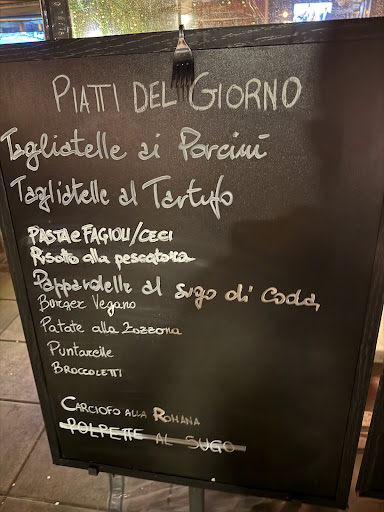 PIATTI DEL GIORNO
Tagliatelle ai Porcini
Tagliatelle al Tartufo
PASTA e FAGIOLI/CECI
Risotto alla pescatora
Pappardelle al sugo di Coda
Burger Vegano
Patate alla Zozzona
Puntarelle
BROCCOLETTI
CARCIOFO ALLA ROMANA
POLPETTE AL SUGO